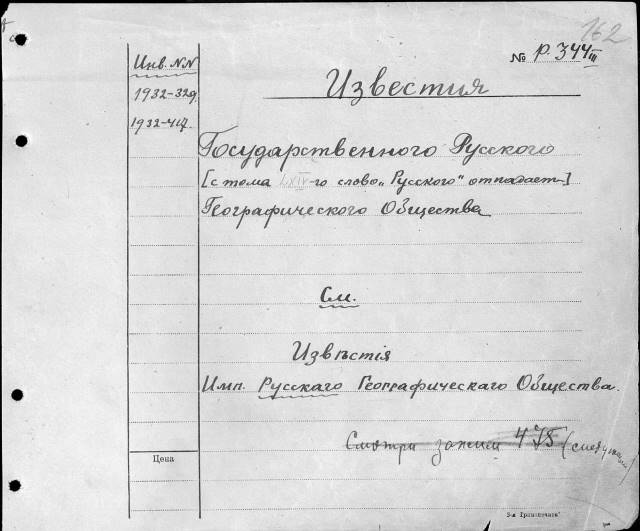 162
№ Р. 344 III
Инв. NN
1932-329.
1932-417.
Известия
Государственного Русского
[с тома LXIV-го слово „Русского" отпадает]
Географического Общества
См.
Извѣстія
Имп. Русскаго Географическаго Общества.
Смотри 475
Цена